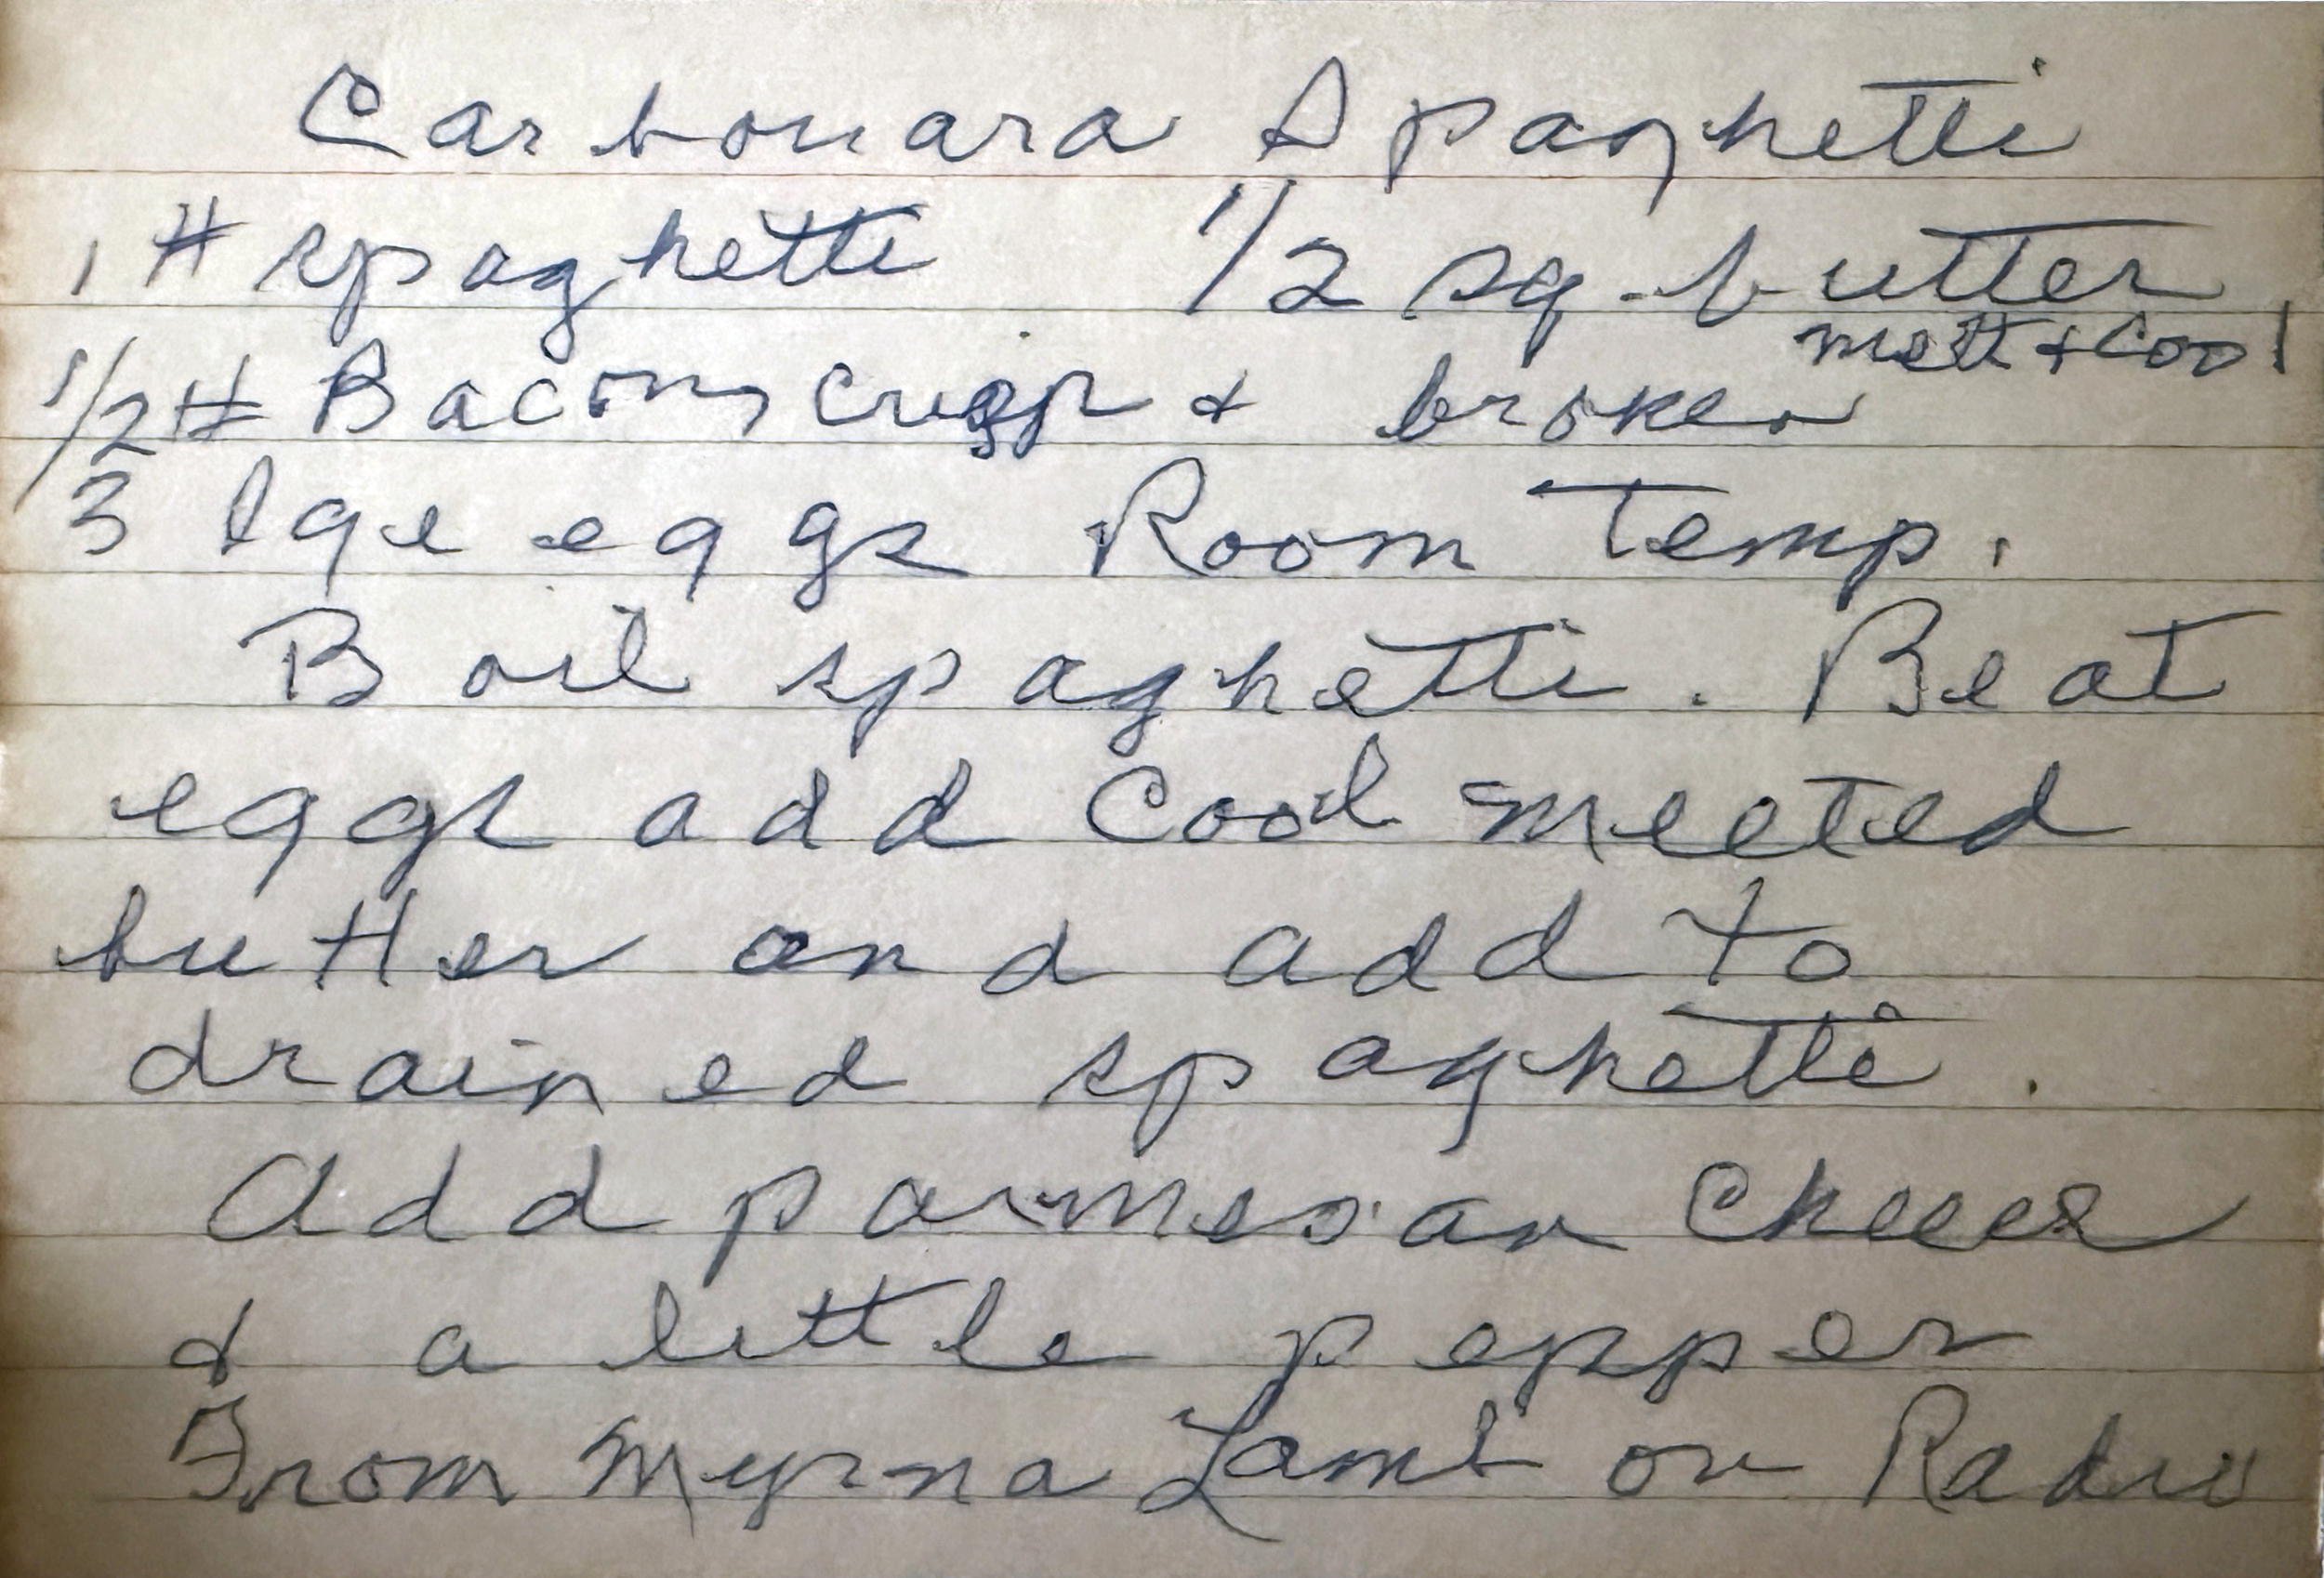 Carbonara Spaghetti
1 # spaghetti 1/2 sq. butter
melt & cool
1/2 # Bacon, crisp & broken
3 lge eggs Room Temp.
Boil spaghetti. Beat
eggs add cool melted
butter and add to
drained spaghetti.
Add parmesan cheese
& a little pepper
From Myrna Lamb on Radio